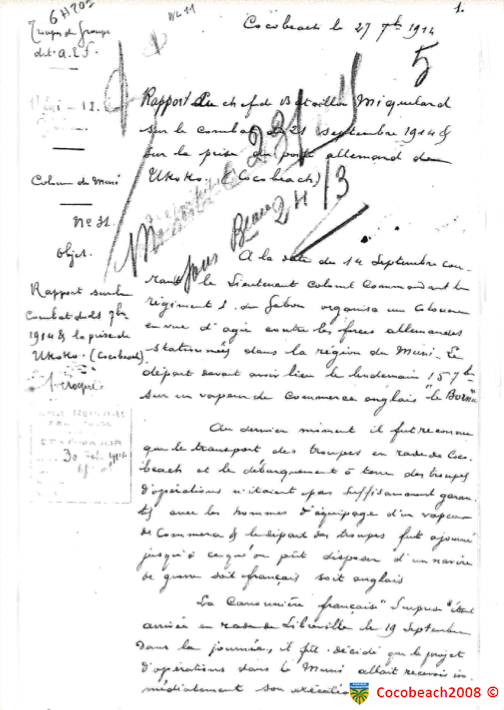 6H202
N° 11
1.
Troupes du Groupe
de l'A.E.F.
Cocobeach le 27 7bre 1914
5
Rapport du chef de Bataillon Miquelard
sur le combat du 21 septembre 1914 &
sur la prise du poste allemand de
Ukoko. (Cocobeach)
Colonne du Muni
N° 31
Objet.
Rapport sur le
Combat du 21 7bre
1914 & la prise de
Ukoko. (Cocobeach).
30
A la date du 14 septembre cou-
rant le Lieutenant Colonel Commandant le
régiment du Gabon organisa une Colonne
en vue d'agir contre les forces allemandes
stationnées dans la région du Muni. Le
départ devait avoir lieu le lendemain 15 7bre
sur un vapeur de Commerce anglais
Au dernier moment il fut reconnu
que le transport des troupes en rade de Coco-
beach et le débarquement à terre des troupes
d'opérations n'étaient pas suffisamment garan-
tis avec les hommes d'équipage d'un vapeur
de Commerce & le départ des troupes fut ajourné
jusqu'à ce qu'on pût disposer d'un navire
de guerre soit français soit anglais
La Canonnière française "Surprise" étant
arrivée en rade de Libreville le 19 Septembre
dans la journée, il fût décidé que le projet
d'opérations dans le Muni allait recevoir im-
médiatement son exécution
Cocobeach2008 ©